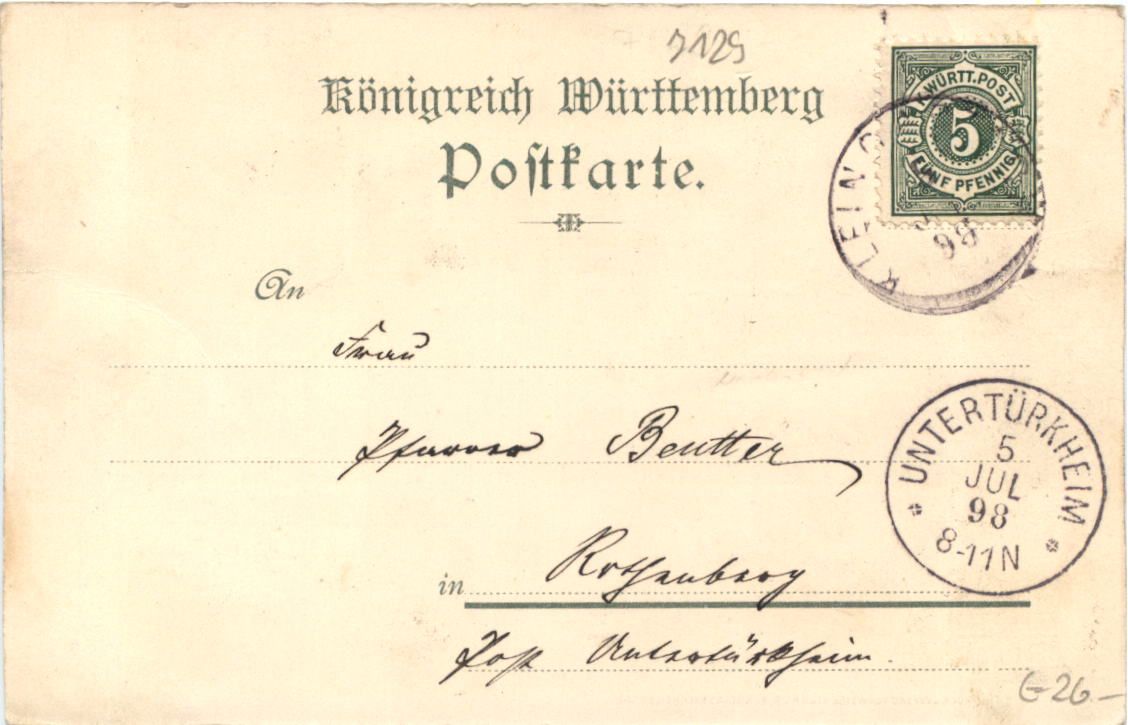 7129
Königreich Württemberg
Postkarte.
K. WÜRTT. POST
5
FÜNF PFENNIG.
KLEIN
98
An
Frau
Pfarrer Beutter
in Rothenberg
Post Untertürkheim.
UNTERTÜRKHEIM
5
JUL
98
8-11N
26.–